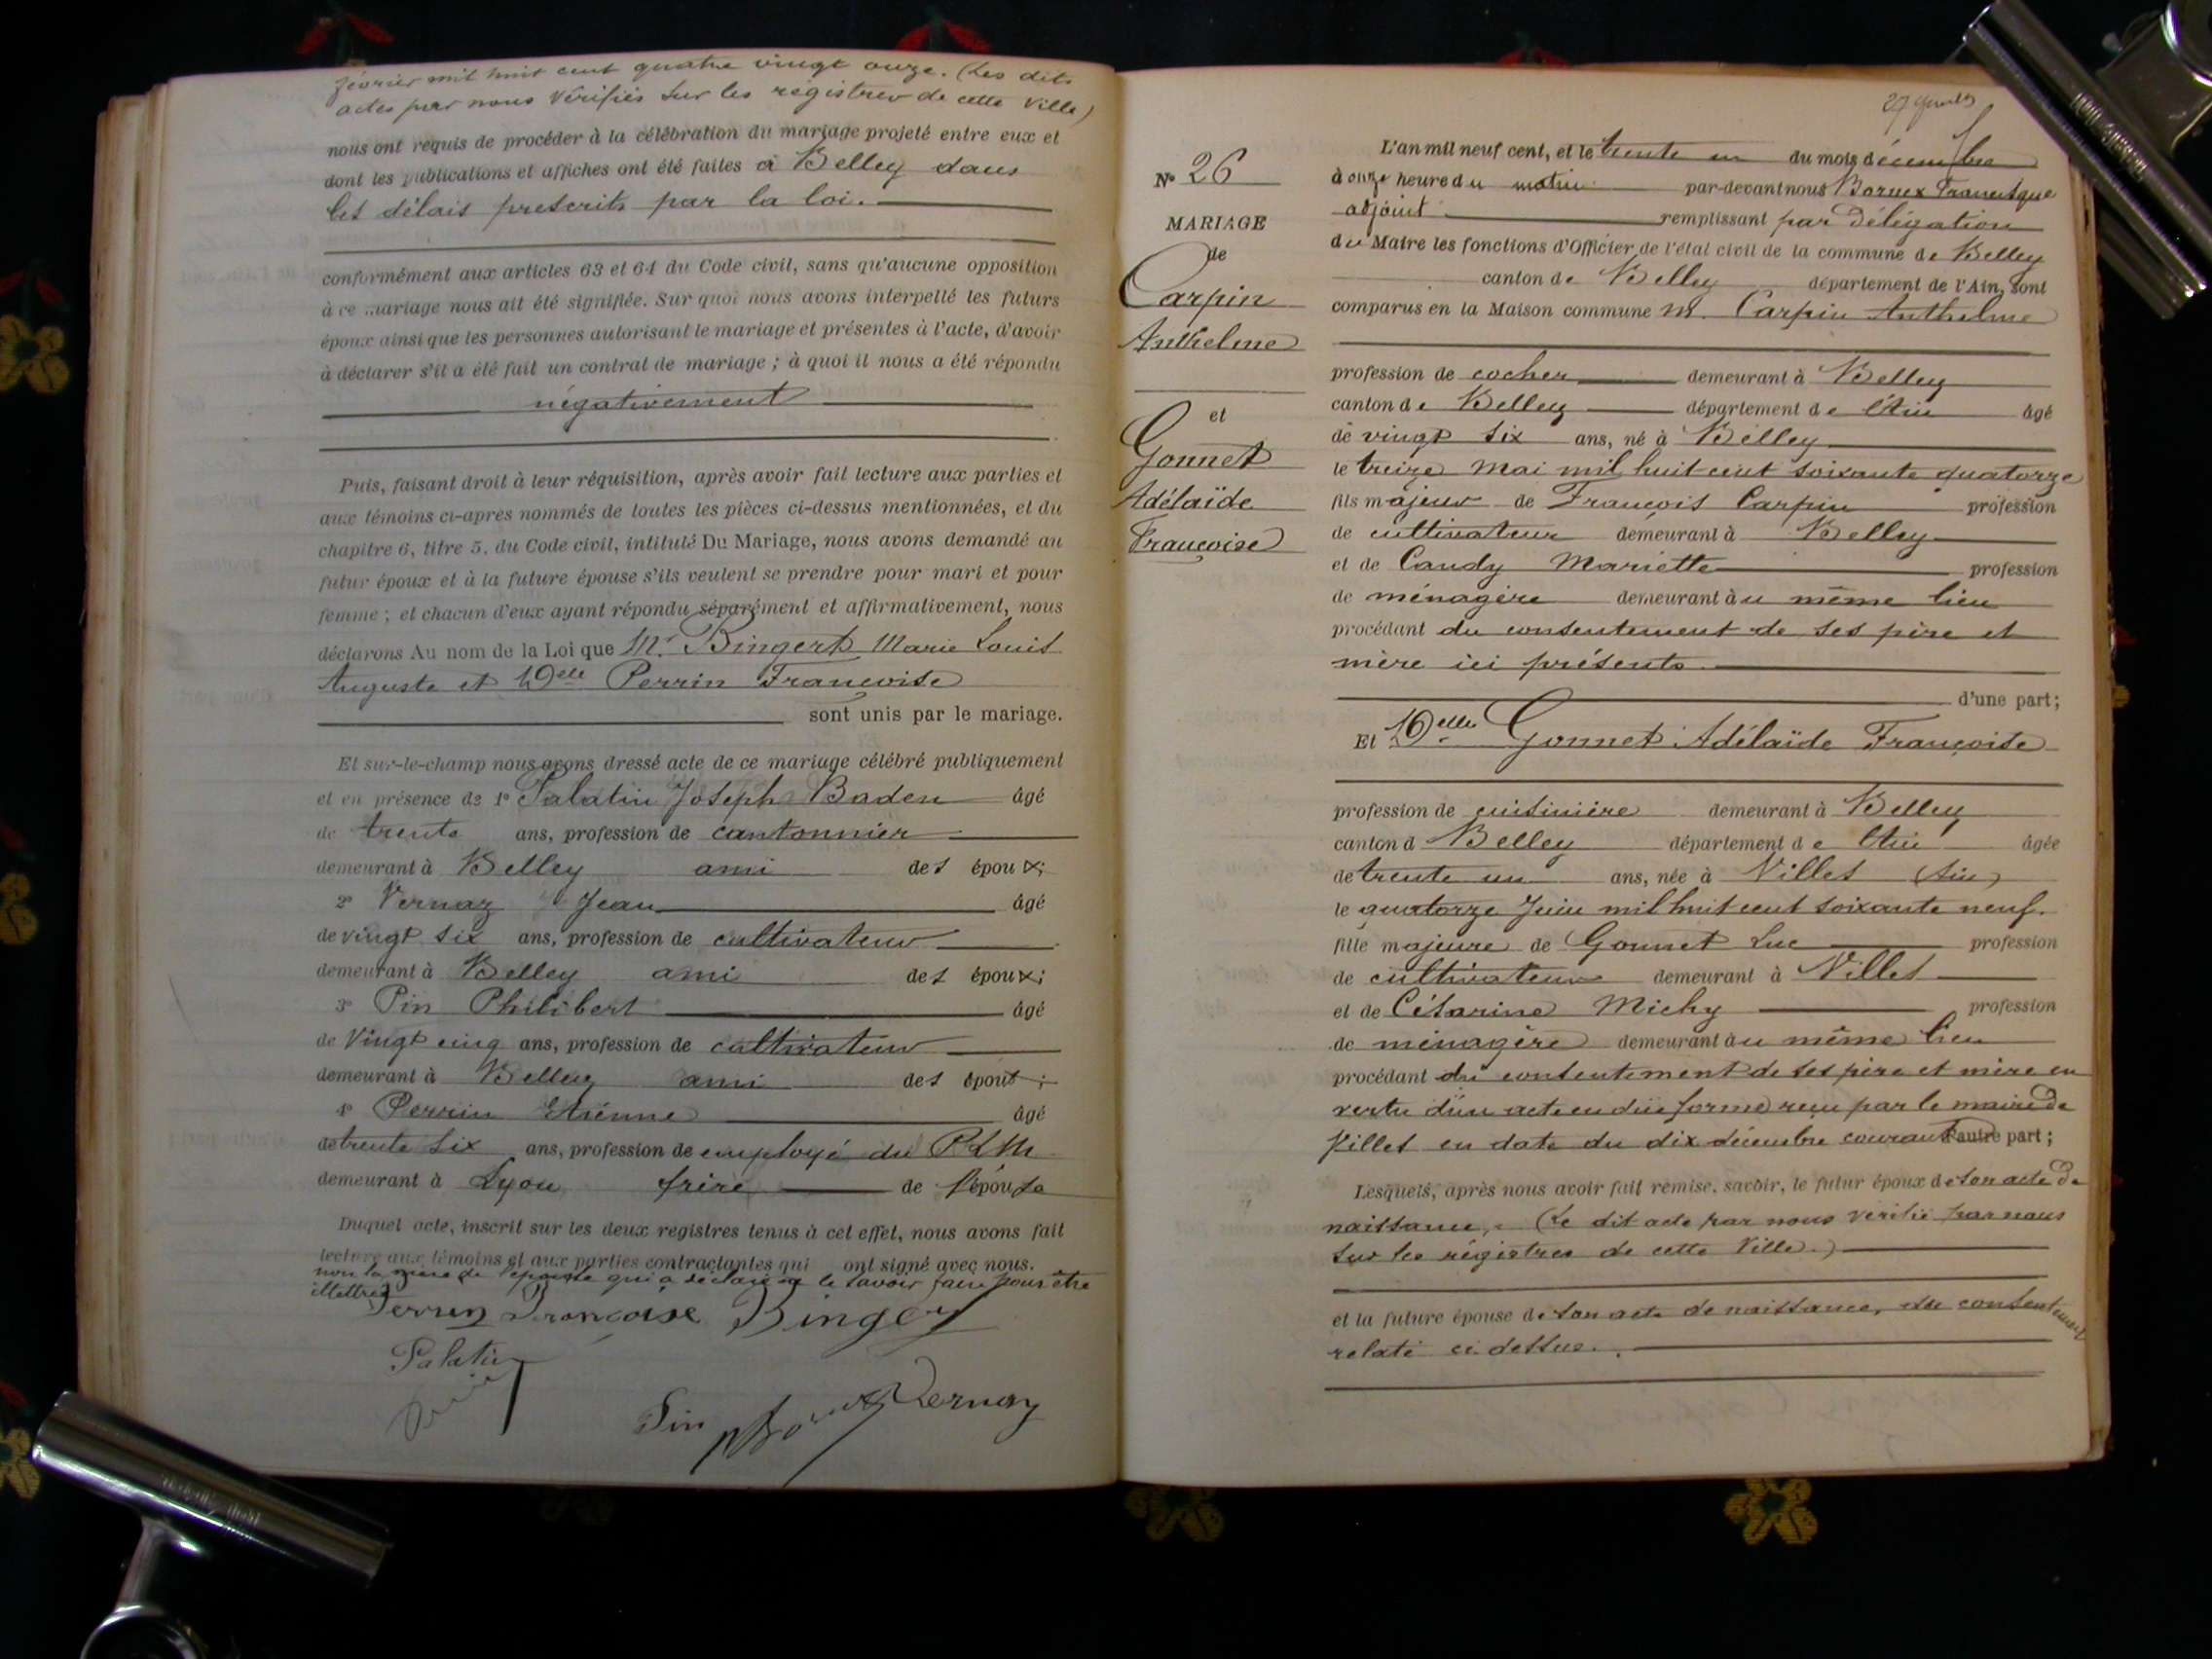 février mil huit cent quatre vingt onze. (Les dits
actes par nous vérifiés sur les régistres de cette ville)
nous ont requis de procéder à la célébration du mariage projeté entre eux et
dont les publications et affiches ont été faites à Belley dans
les délais prescrits par la loi.
conformément aux articles 63 et 64 du Code civil, sans qu'aucune opposition
à ce mariage nous ait été signifiée. Sur quoi nous avons interpellé les futurs
époux ainsi que les personnes autorisant le mariage et présentes à l'acte, d'avoir
à déclarer s'il a été fait un contrat de mariage ; à quoi il nous a été répondu
négativement
Puis, faisant droit à leur réquisition, après avoir fait lecture aux parties et
aux témoins ci-après nommés de toutes les pièces ci-dessus mentionnées, et du
chapitre 6, titre 5, du Code civil, intitulé Du Mariage, nous avons demandé au
futur époux et à la future épouse s'ils veulent se prendre pour mari et pour
femme ; et chacun d'eux ayant répondu séparément et affirmativement, nous
déclarons Au nom de la Loi que M. Bingert Marie Louis
Auguste et Delle Perrin Françoise
sont unis par le mariage.
Et sur-le-champ nous avons dressé acte de ce mariage célébré publiquement
et en présence de 1° Palatin Joseph Baden âgé
de trente ans, profession de cantonnier
demeurant à Belley ami des époux;
2° Vernaz Jean âgé
de vingt six ans, profession de cultivateur
demeurant à Belley ami des époux;
3° Pin Philibert âgé
de Vingt cinq ans, profession de cultivateur
demeurant à Belley ami des époux;
4° Perrin Etienne âgé
de trente six ans, profession de employé du PLM
demeurant à Lyon frère de l'épouse
Duquel acte, inscrit sur les deux registres tenus à cet effet, nous avons fait
lecture aux témoins et aux parties contractantes qui ont signé avec nous.
non la mère de l'épouse qui a déclaré ne le savoir faire pour être
illettrée
Perrin Françoise Bingert
Palatin
Pin Vernay
27 
N° 26
MARIAGE
de
Carpin
Anthelme
et
Gonnet
Adélaïde
Françoise
L'an mil neuf cent, et le trente un du mois décembre
à onze heure du matin par-devant nous Bornex Francisque
adjoint remplissant par délégation
du Maire les fonctions d'Officier de l'état civil de la commune de Belley
canton de Belley département de l'Ain, sont
comparus en la Maison commune M. Carpin Anthelme
profession de cocher demeurant à Belley
canton de Belley département de l'Ain âgé
de vingt six ans, né à Belley
le treize Mai mil huit cent soixante quatorze
fils majeur de François Carpin profession
de cultivateur demeurant à Belley
et de Candy Mariette profession
de ménagère demeurant àu même lieu
procédant du consentement de ses père et
mère ici présents
d'une part;
Et Delle Gonnet Adélaïde Françoise
profession de cuisinière demeurant à Belley
canton d Belley département de l'Ain âgée
de trente un ans, née à Villes (Ain)
le quatorze Juin mil huit cent soixante neuf.
fille majeure de Gonnet Luc profession
de cultivateur demeurant à Villes
et de Césarine Michy profession
de ménagère demeurant àu même lieu
procédant du consentement de ses père et mère en
vertu d'un acte en due forme reçu par le maire de
Villes en date du dix décembre courant d'autre part;
Lesquels, après nous avoir fait remise, savoir, le futur époux de son acte de
naissance, (Le dit acte par nous vérifié par nous
sur les régistres de cette Ville.)
et la future épouse de son acte de naissance, du consentement
relaté ci dessus.